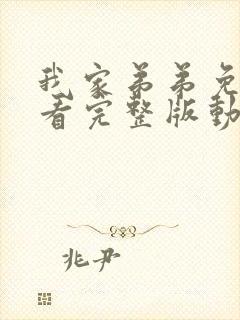 我家弟弟免
看完整版動
兆尹